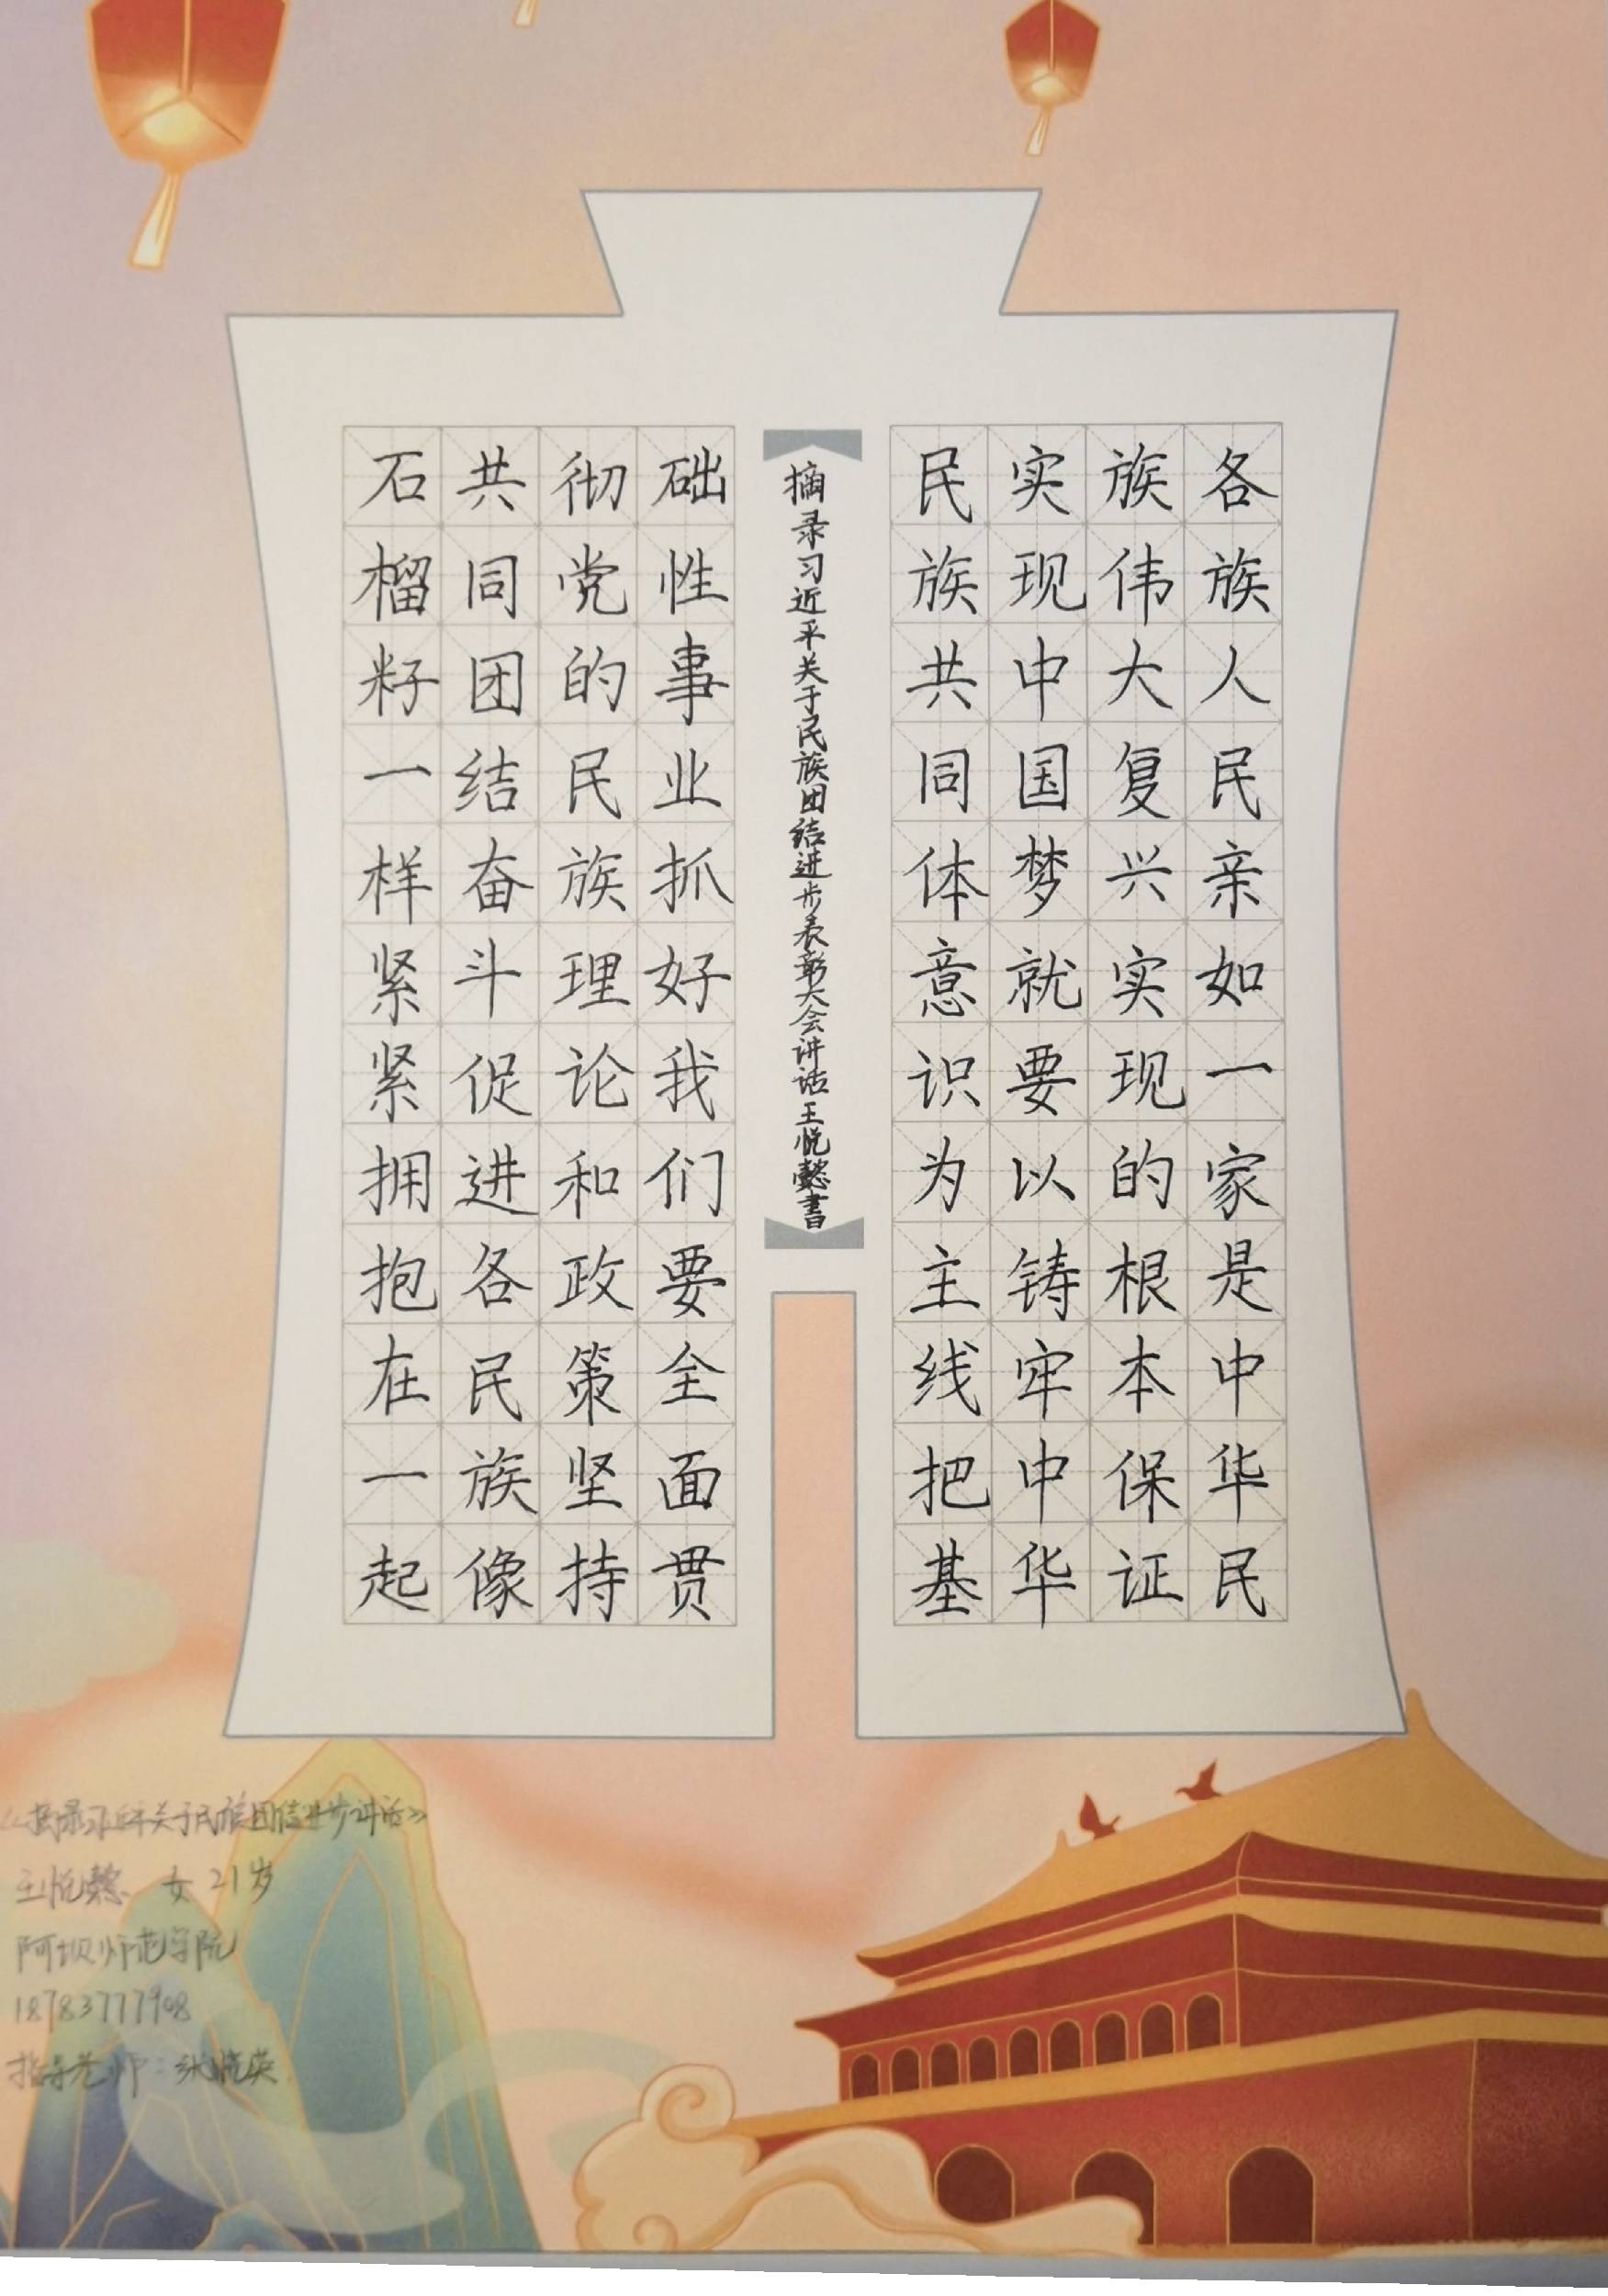 各族人民亲如一家是中华民
族伟大复兴实现的根本保证
实现中国梦就要以铸牢中华
民族共同体意识为主线把基
摘录习近平关于民族团结进步表彰大会讲话王悦懿书
础性事业抓好我们要全面贯
彻党的民族理论和政策坚持
共同团结奋斗促进各民族像
石榴籽一样紧紧拥抱在一起
《摘录习近平关于民族团结进步讲话》
王悦懿 女 21岁
阿坝师范学院
18783777908
指导老师:张